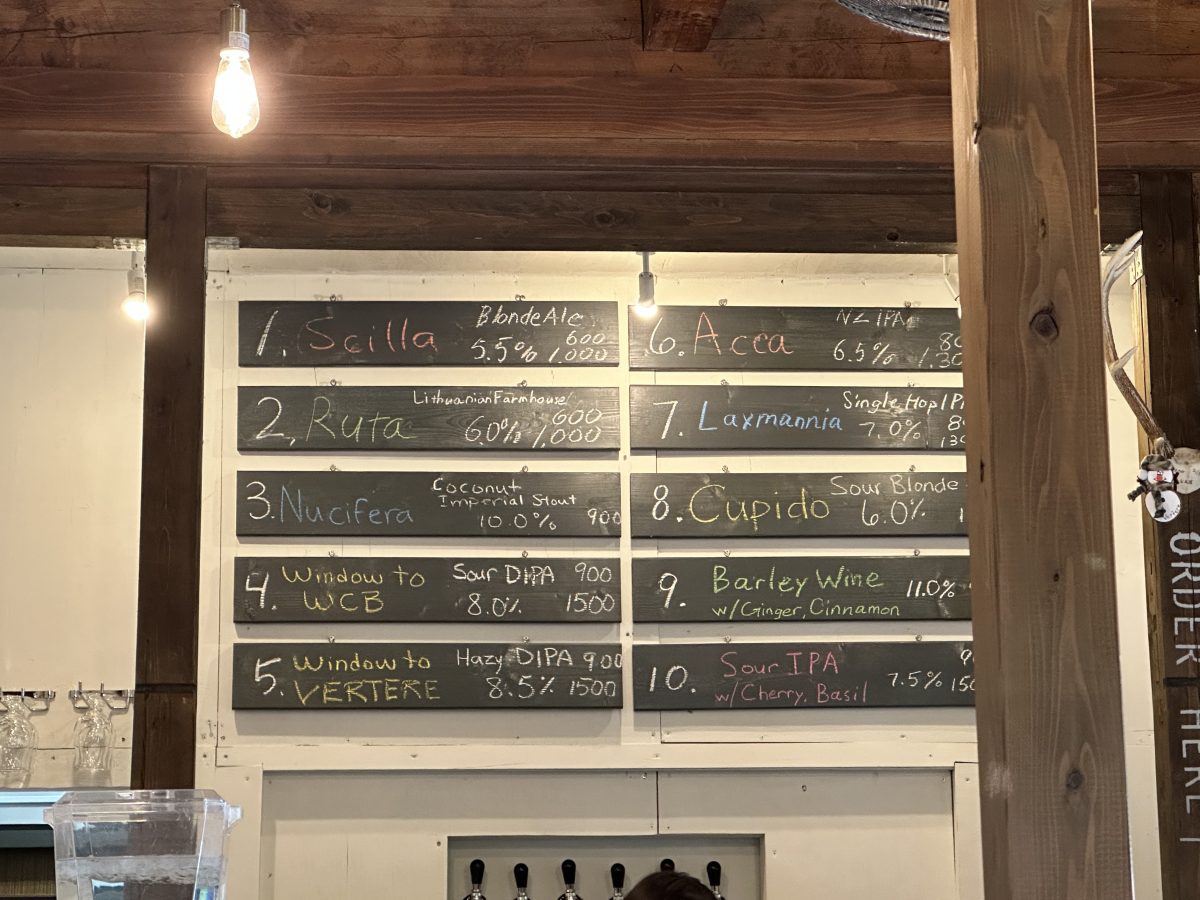 1. Scilla Blonde Ale 600
5.5% 1,000
2. Ruta Lithuanian Farmhouse 600
6.0% 1,000
3. Nucifera Coconut
Imperial Stout
10.0% 900
4. Window to Sour DIPA 900
WCB 8.0% 1500
5. Window to Hazy DIPA 900
VERTERE 8.5% 1500
6. Acca NZ IPA
6.5%
7. Laxmannia Single Hop
7.0%
8. Cupido Sour Blonde
6.0%
9. Barley Wine 11.0%
w/Ginger, Cinnamon
10. Sour IPA
w/Cherry, Basil 7.5%
ORDER HERE!